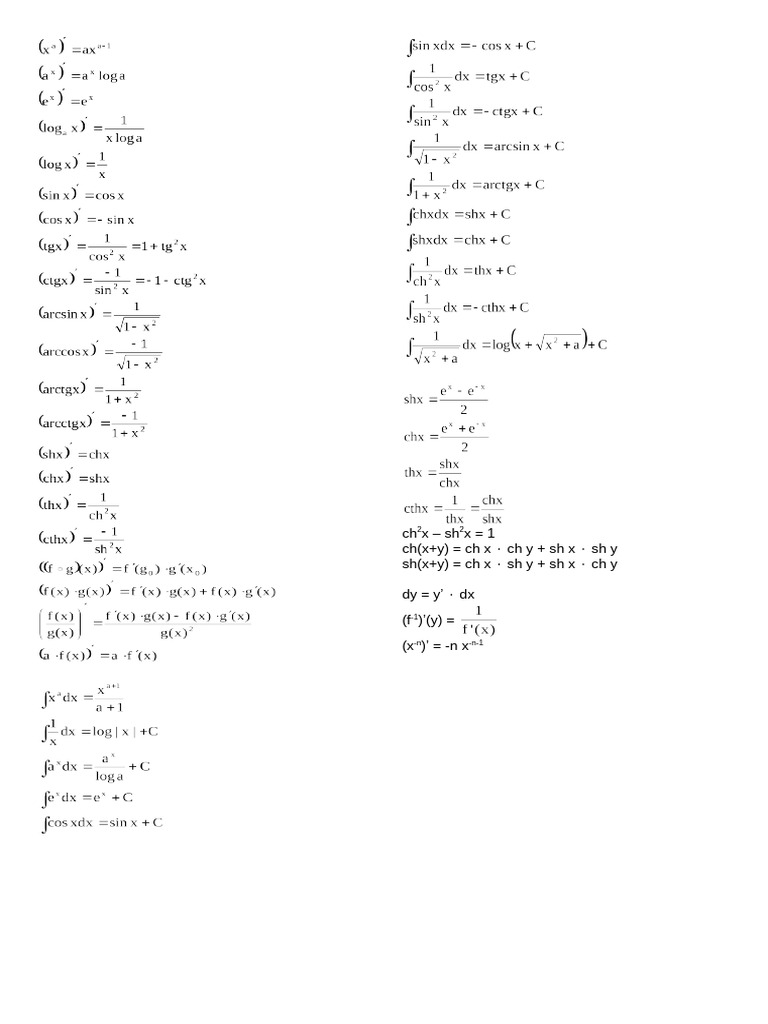 (x^a)′ = ax^(a−1)
(a^x)′ = a^x log a
(e^x)′ = e^x
(log_a x)′ = 1/(x log a)
(log x)′ = 1/x
(sin x)′ = cos x
(cos x)′ = − sin x
(tgx)′ = 1/cos² x = 1 + tg² x
(ctgx)′ = −1/sin² x = −1 − ctg² x
(arcsin x)′ = 1/√(1 − x²)
(arccos x)′ = −1/√(1 − x²)
(arctgx)′ = 1/(1 + x²)
(arcctgx)′ = −1/(1 + x²)
(shx)′ = chx
(chx)′ = shx
(thx)′ = 1/ch² x
(cthx)′ = −1/sh² x
((f ∘ g)(x))′ = f′(g₀) · g′(x₀)
(f(x) · g(x))′ = f′(x) · g(x) + f(x) · g′(x)
(f(x)/g(x))′ = (f′(x) · g(x) − f(x) · g′(x))/g(x)²
(a · f(x))′ = a · f′(x)
∫x^a dx = x^(a+1)/(a + 1)
∫1/x dx = log | x | + C
∫a^x dx = a^x/log a + C
∫e^x dx = e^x + C
∫cos xdx = sin x + C
∫sin xdx = − cos x + C
∫1/cos² x dx = tgx + C
∫1/sin² x dx = − ctgx + C
∫1/√(1 − x²) dx = arcsin x + C
∫1/(1 + x²) dx = arctgx + C
∫chxdx = shx + C
∫shxdx = chx + C
∫1/ch² x dx = thx + C
∫1/sh² x dx = − cthx + C
∫1/√(x² + a) dx = log(x + √(x² + a)) + C
shx = (e^x − e^−x)/2
chx = (e^x + e^−x)/2
thx = shx/chx
cthx = 1/thx = chx/shx
ch²x – sh²x = 1
ch(x+y) = ch x · ch y + sh x · sh y
sh(x+y) = ch x · sh y + sh x · ch y
dy = y’ · dx
(f^-1)’(y) = 1/f'(x)
(x^-n)’ = -n x^-n-1